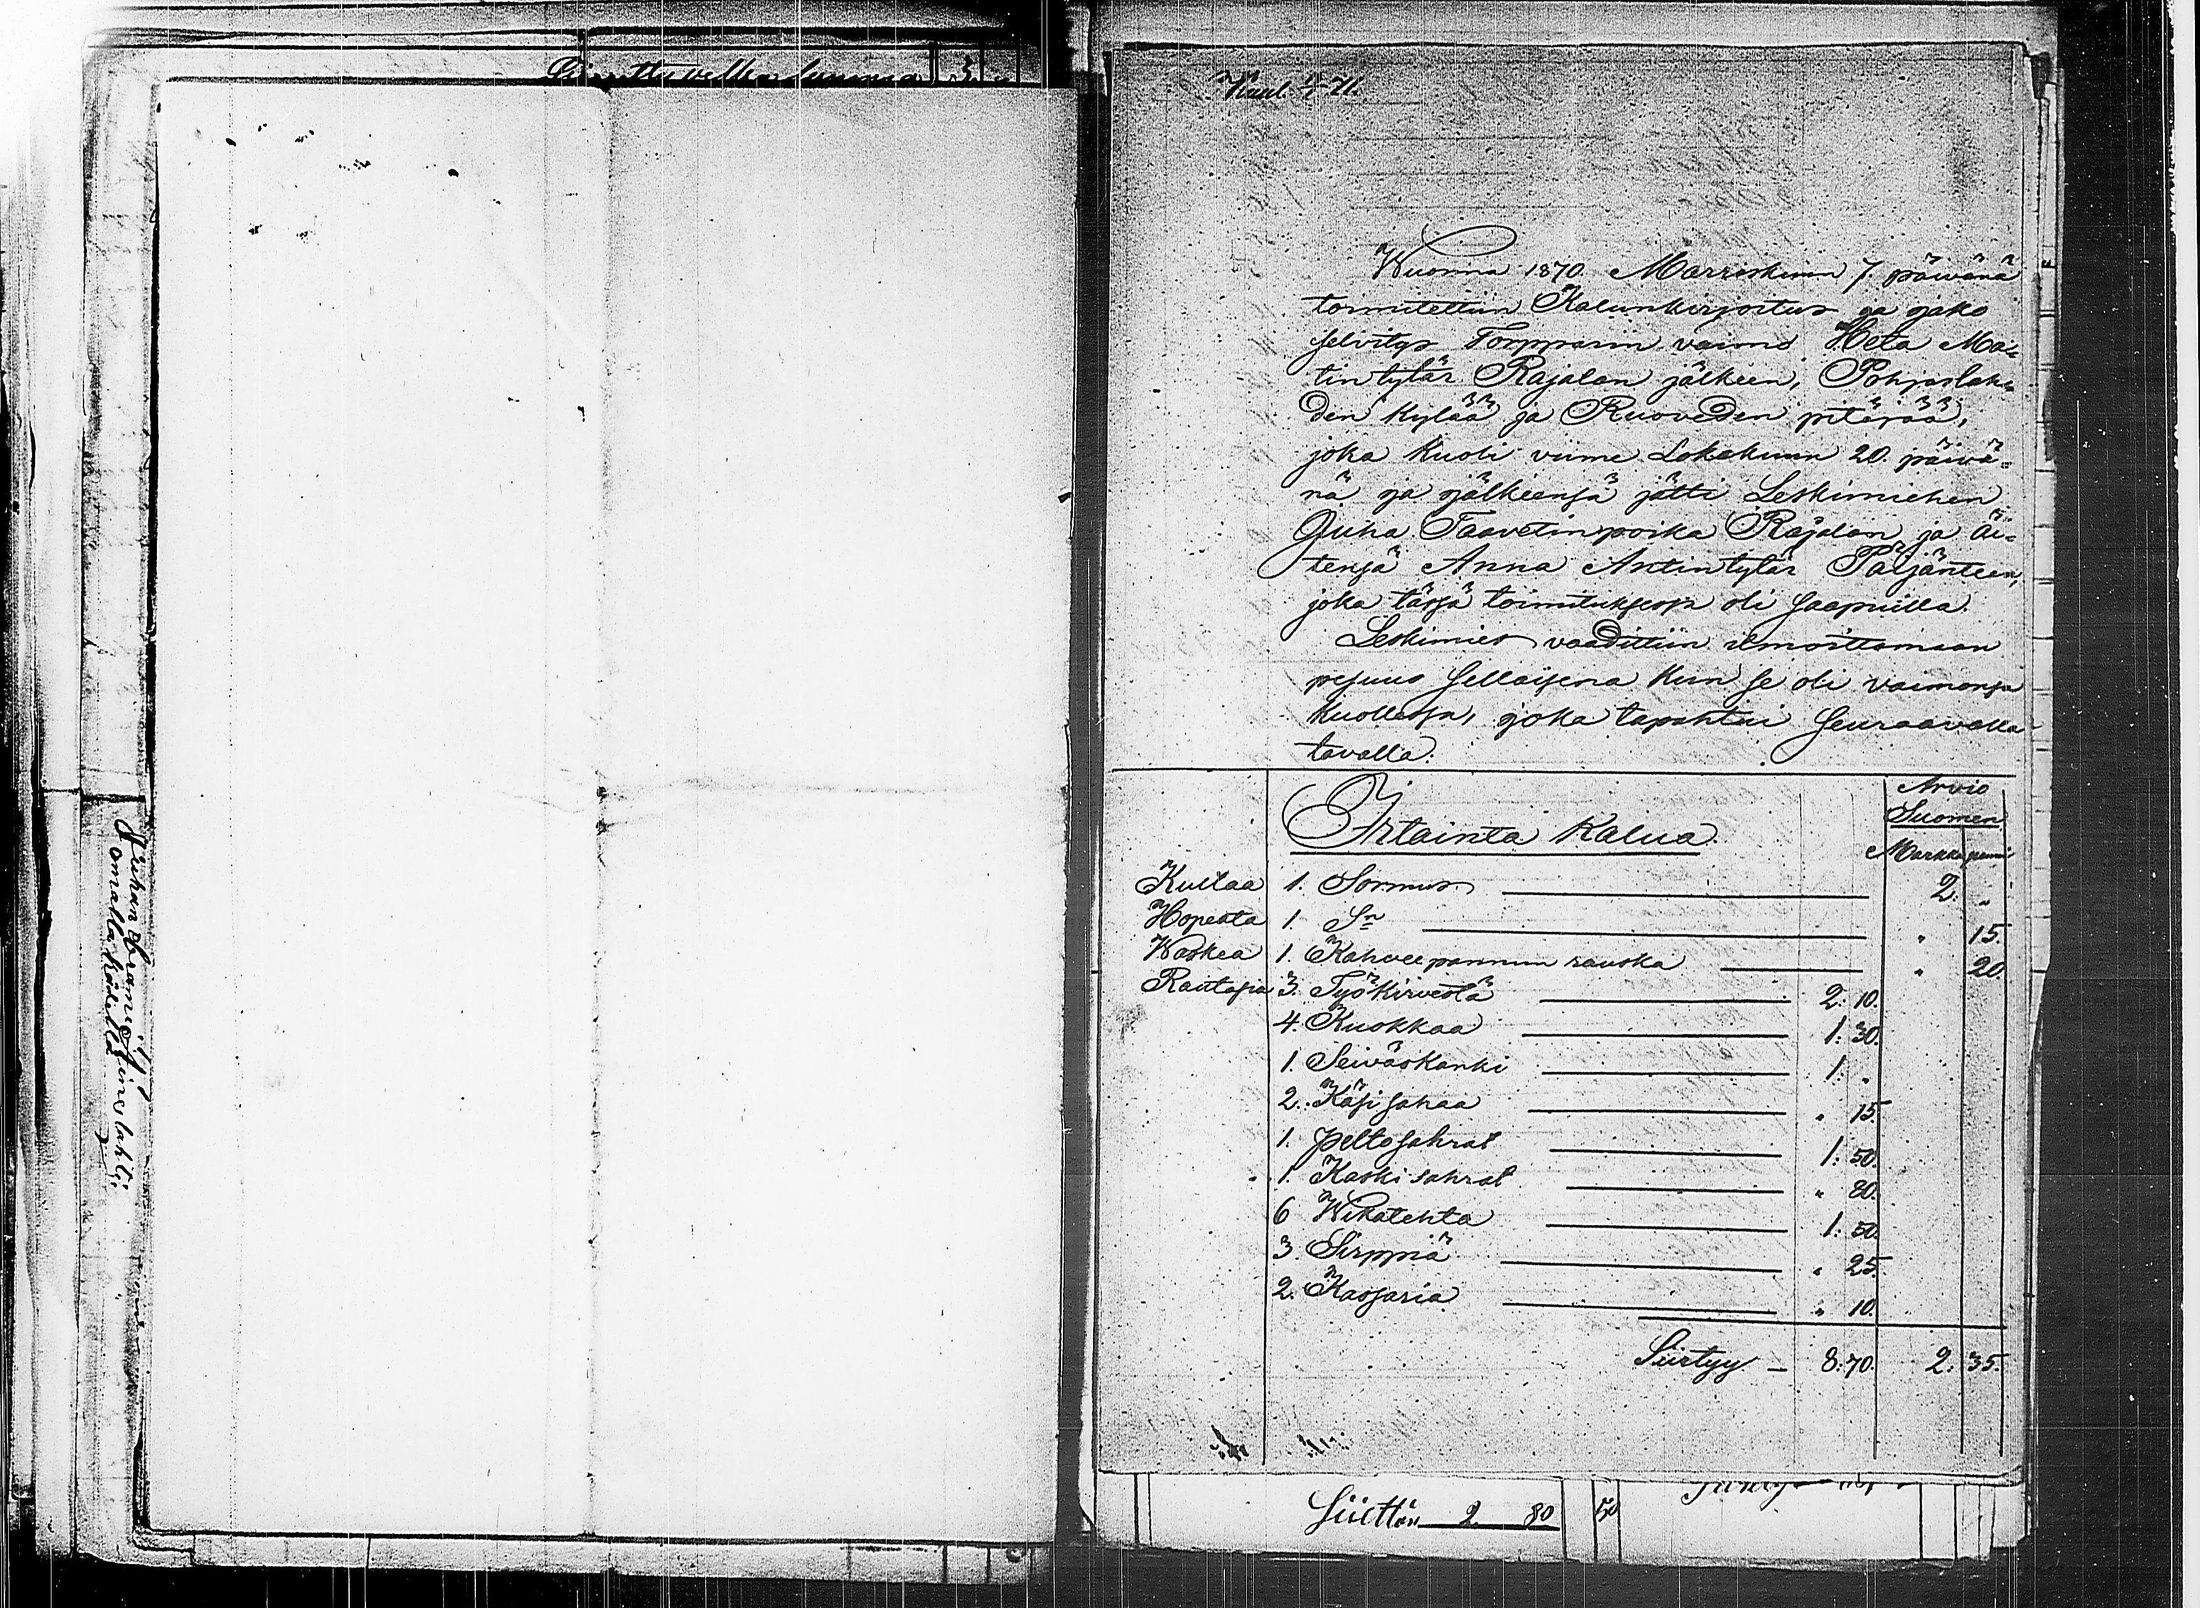 Kuul 4/1 71.
Wuonna 1870. Marraskuun 7. päivänä
toimitettiin Kalunkirjoitus ja jako
selvitys Torpparin vaimo Heta Ma=
tin tytär Rajalan jälkeen, Pohjaslah=
den kylää ja Ruoveden pitäjää,
joka kuoli viime Lokakuun 20. päivä=
nä ja jälkeensä jätti Leskimiehen
Juha Taavetinpoika Rajalan ja äi=
tensä Anna Antintytär Paijänteen,
joka tässä toimituksessa oli saapuilla.
Leskimies vaadittiin ilmoittamaan
pesuus sellaisena kuin se oli vaimonsa
kuollessa, joka tapahtui seuraavalla
tavalla:
Arvio
Suomen
Irtainta Kalua.
Markka penni
Kultaa 1. Sormus 2. "
Hopeata 1. Sn " 15.
Waskea 1. Kahveepannun rauska " 20.
Rautasia 3. Työkirvestä 2: 10.
4. Kuokkaa 1: 30.
1. Seiväskanki 1: "
2. Käsi sahaa " 15.
1. peltosahrat 1: 50.
1. Kaski sahrat " 80.
6 Wikatehta 1: 50.
3. Sirppiä " 25.
2. Kassaria " 10.
Siirtyy – 8: 70. 2: 35.
Siirettän 2 80 50
Siirettävelka summa 3
Juhan Abrami
omalla kädellä